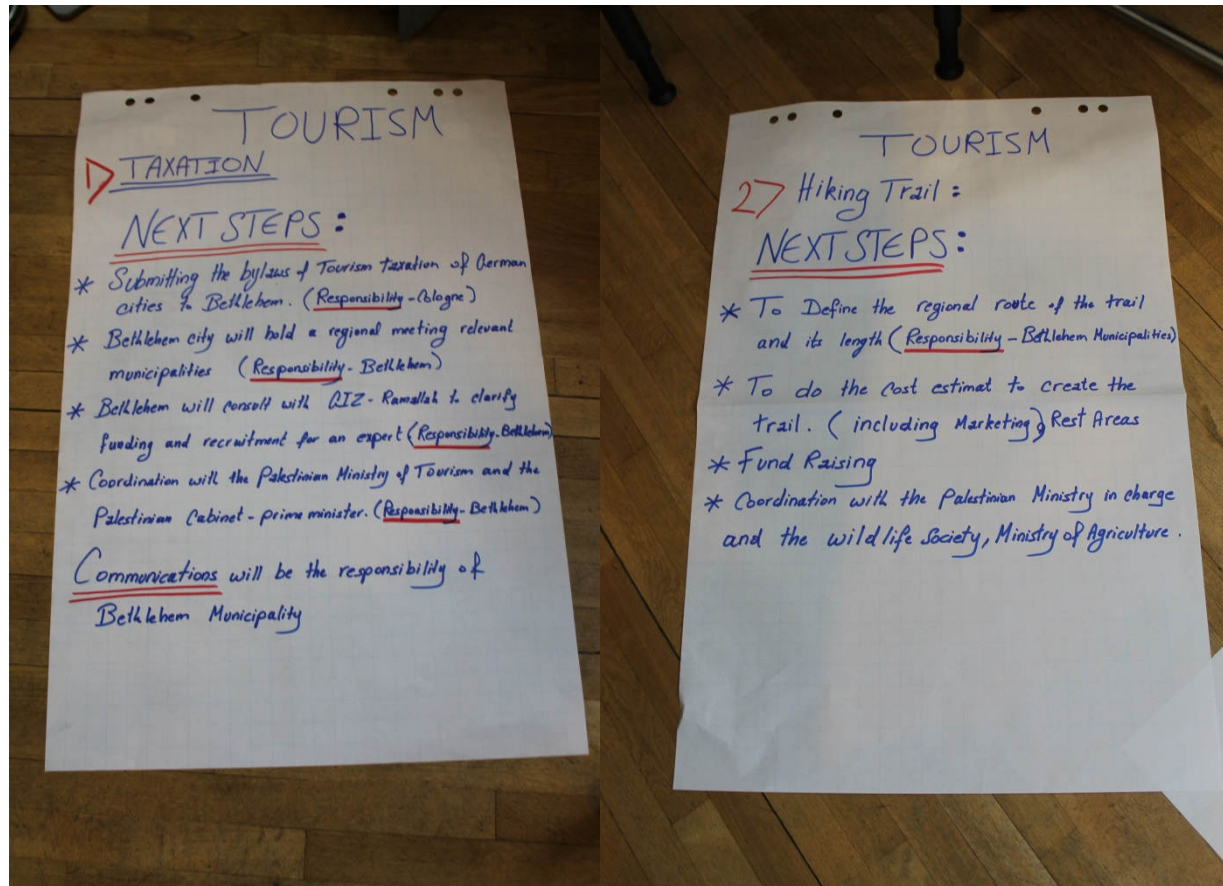 TOURISM
1) TAXATION
NEXT STEPS:
* Submitting the bylaws of Tourism taxation of German
cities to Bethlehem. (Responsibility - Cologne)
* Bethlehem city will hold a regional meeting relevant
municipalities (Responsibility - Bethlehem)
* Bethlehem will consult with GIZ - Ramallah to clarify
funding and recruitment for an expert (Responsibility - Bethlehem)
* Coordination with the Palestinian Ministry of Tourism and the
Palestinian Cabinet - prime minister. (Responsibility - Bethlehem)
Communications will be the responsibility of
Bethlehem Municipality
TOURISM
2) Hiking Trail:
NEXT STEPS:
* To Define the regional route of the trail
and its length (Responsibility - Bethlehem Municipalities)
* To do the cost estimat to create the
trail. (including Marketing) Rest Areas
* Fund Raising
* Coordination with the Palestinian Ministry in charge
and the wildlife Society, Ministry of Agriculture.